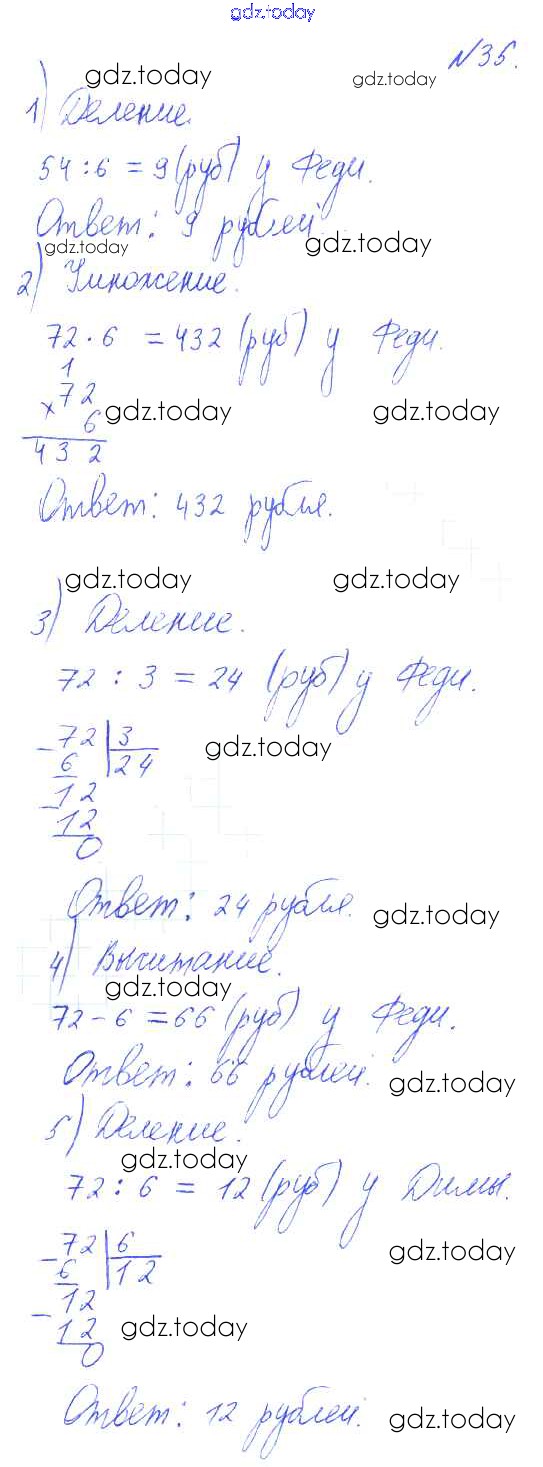 gdz.today
№35.
gdz.today gdz.today
1) Деление.
54 : 6 = 9 (руб) у Феди.
Ответ: 9 рублей.
gdz.today gdz.today
2) Умножение.
72 · 6 = 432 (руб) у Феди.
1
× 72
6
gdz.today gdz.today
432
Ответ: 432 рубля.
gdz.today gdz.today
3) Деление.
72 : 3 = 24 (руб) у Феди.
- 72 | 3
6 24
gdz.today
- 12
12
0
Ответ: 24 рубля.
gdz.today
4) Вычитание.
gdz.today
72 - 6 = 66 (руб) у Феди.
Ответ: 66 рублей.
gdz.today
5) Деление.
gdz.today
72 : 6 = 12 (руб) у Димы.
- 72 | 6
6 12
gdz.today
- 12
12
gdz.today
0
Ответ: 12 рублей.
gdz.today